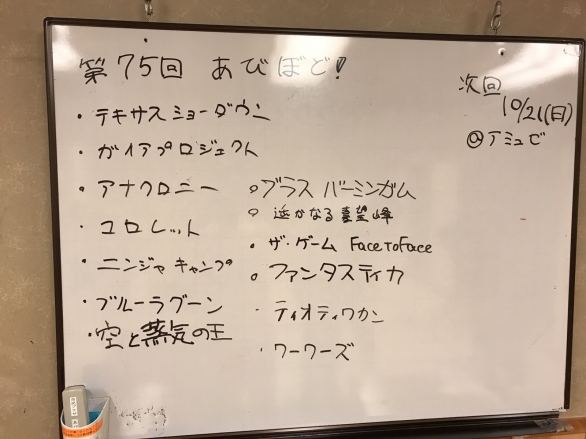 第75回 あびぼど!
次回
10/21(日)
@アミュゼ
・テキサスショーダウン
・ガイアプロジェクト
・アナクロニー
・コロレット
・ニンジャキャンプ
・ブルーラグーン
・空と蒸気の王
・ブラス バーミンガム
・遥かなる喜望峰
・ザ・ゲーム FacetoFace
・ファンタスティカ
・ティオティワカン
・ワーワーズ